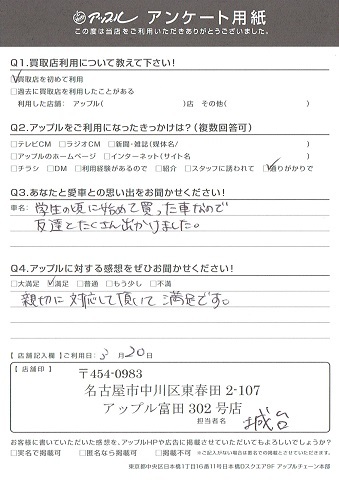 アップル アンケート用紙
この度は当店をご利用いただきありがとうございました。
Q1.買取店利用について教えて下さい!
☑買取店を初めて利用
□過去に買取店を利用したことがある
利用した店舗: アップル( )店 その他( )
Q2.アップルをご利用になったきっかけは?(複数回答可)
□テレビCM □ラジオCM □新聞・雑誌(媒体名/ )
□アップルのホームページ □インターネット(サイト名 )
□チラシ □DM □利用経験があるので □紹介 □スタッフに誘われて ☑通りがかりで
Q3.あなたと愛車との思い出をお聞かせください!
車名: 学生の頃に始めて買った車なので
友達とたくさん出かけました。
Q4.アップルに対する感想をぜひお聞かせください!
□大満足 ☑満足 □普通 □もう少し □不満
親切に対応して頂いて満足です。
【店舗記入欄】ご利用日: 3月20日
【店舗印】
〒454-0983
名古屋市中川区東春田 2-107
アップル富田 302 号店
担当者名
お客様に書いていただいた感想を、アップルHPや広告に掲載させていただいてもよろしいでしょうか?
□実名で掲載可 □匿名なら掲載可 □掲載不可 ※ご記入がない場合は匿名での掲載とさせていただきます。
東京都中央区日本橋1丁目16番11号日本橋Dスクエア9F アップルチェーン本部